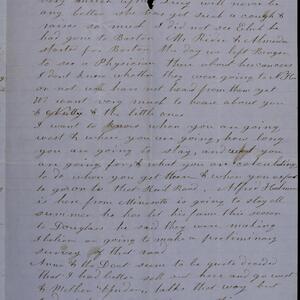 very much after Lucy will never be
any better she has got such a cough &
raises so much I did not see Elick he
had gone to Boston Mr Rice & Almeda
started for Boston the day we left Bangor
to see a Physician there about her cancer
I dont know whether they were going to N.Y.
or not we have not heard from them yet
We want very much to hear about you
& & the little ones
I want to know when you are going
west & where you are going, how long
you are going to stay, and what you
are going for, & what you are calculating
to do when you get there & when you expect
to go on to that Rail Road. Alfred
is here from Minnesota is going to stay all
summer he has let his farm this season
to Douglass he said they were making
 or going to make a preliminary
survey of that road
 & the Dect seem to be quite decided
that I had better sell out here and go west
& Mother talks that way but